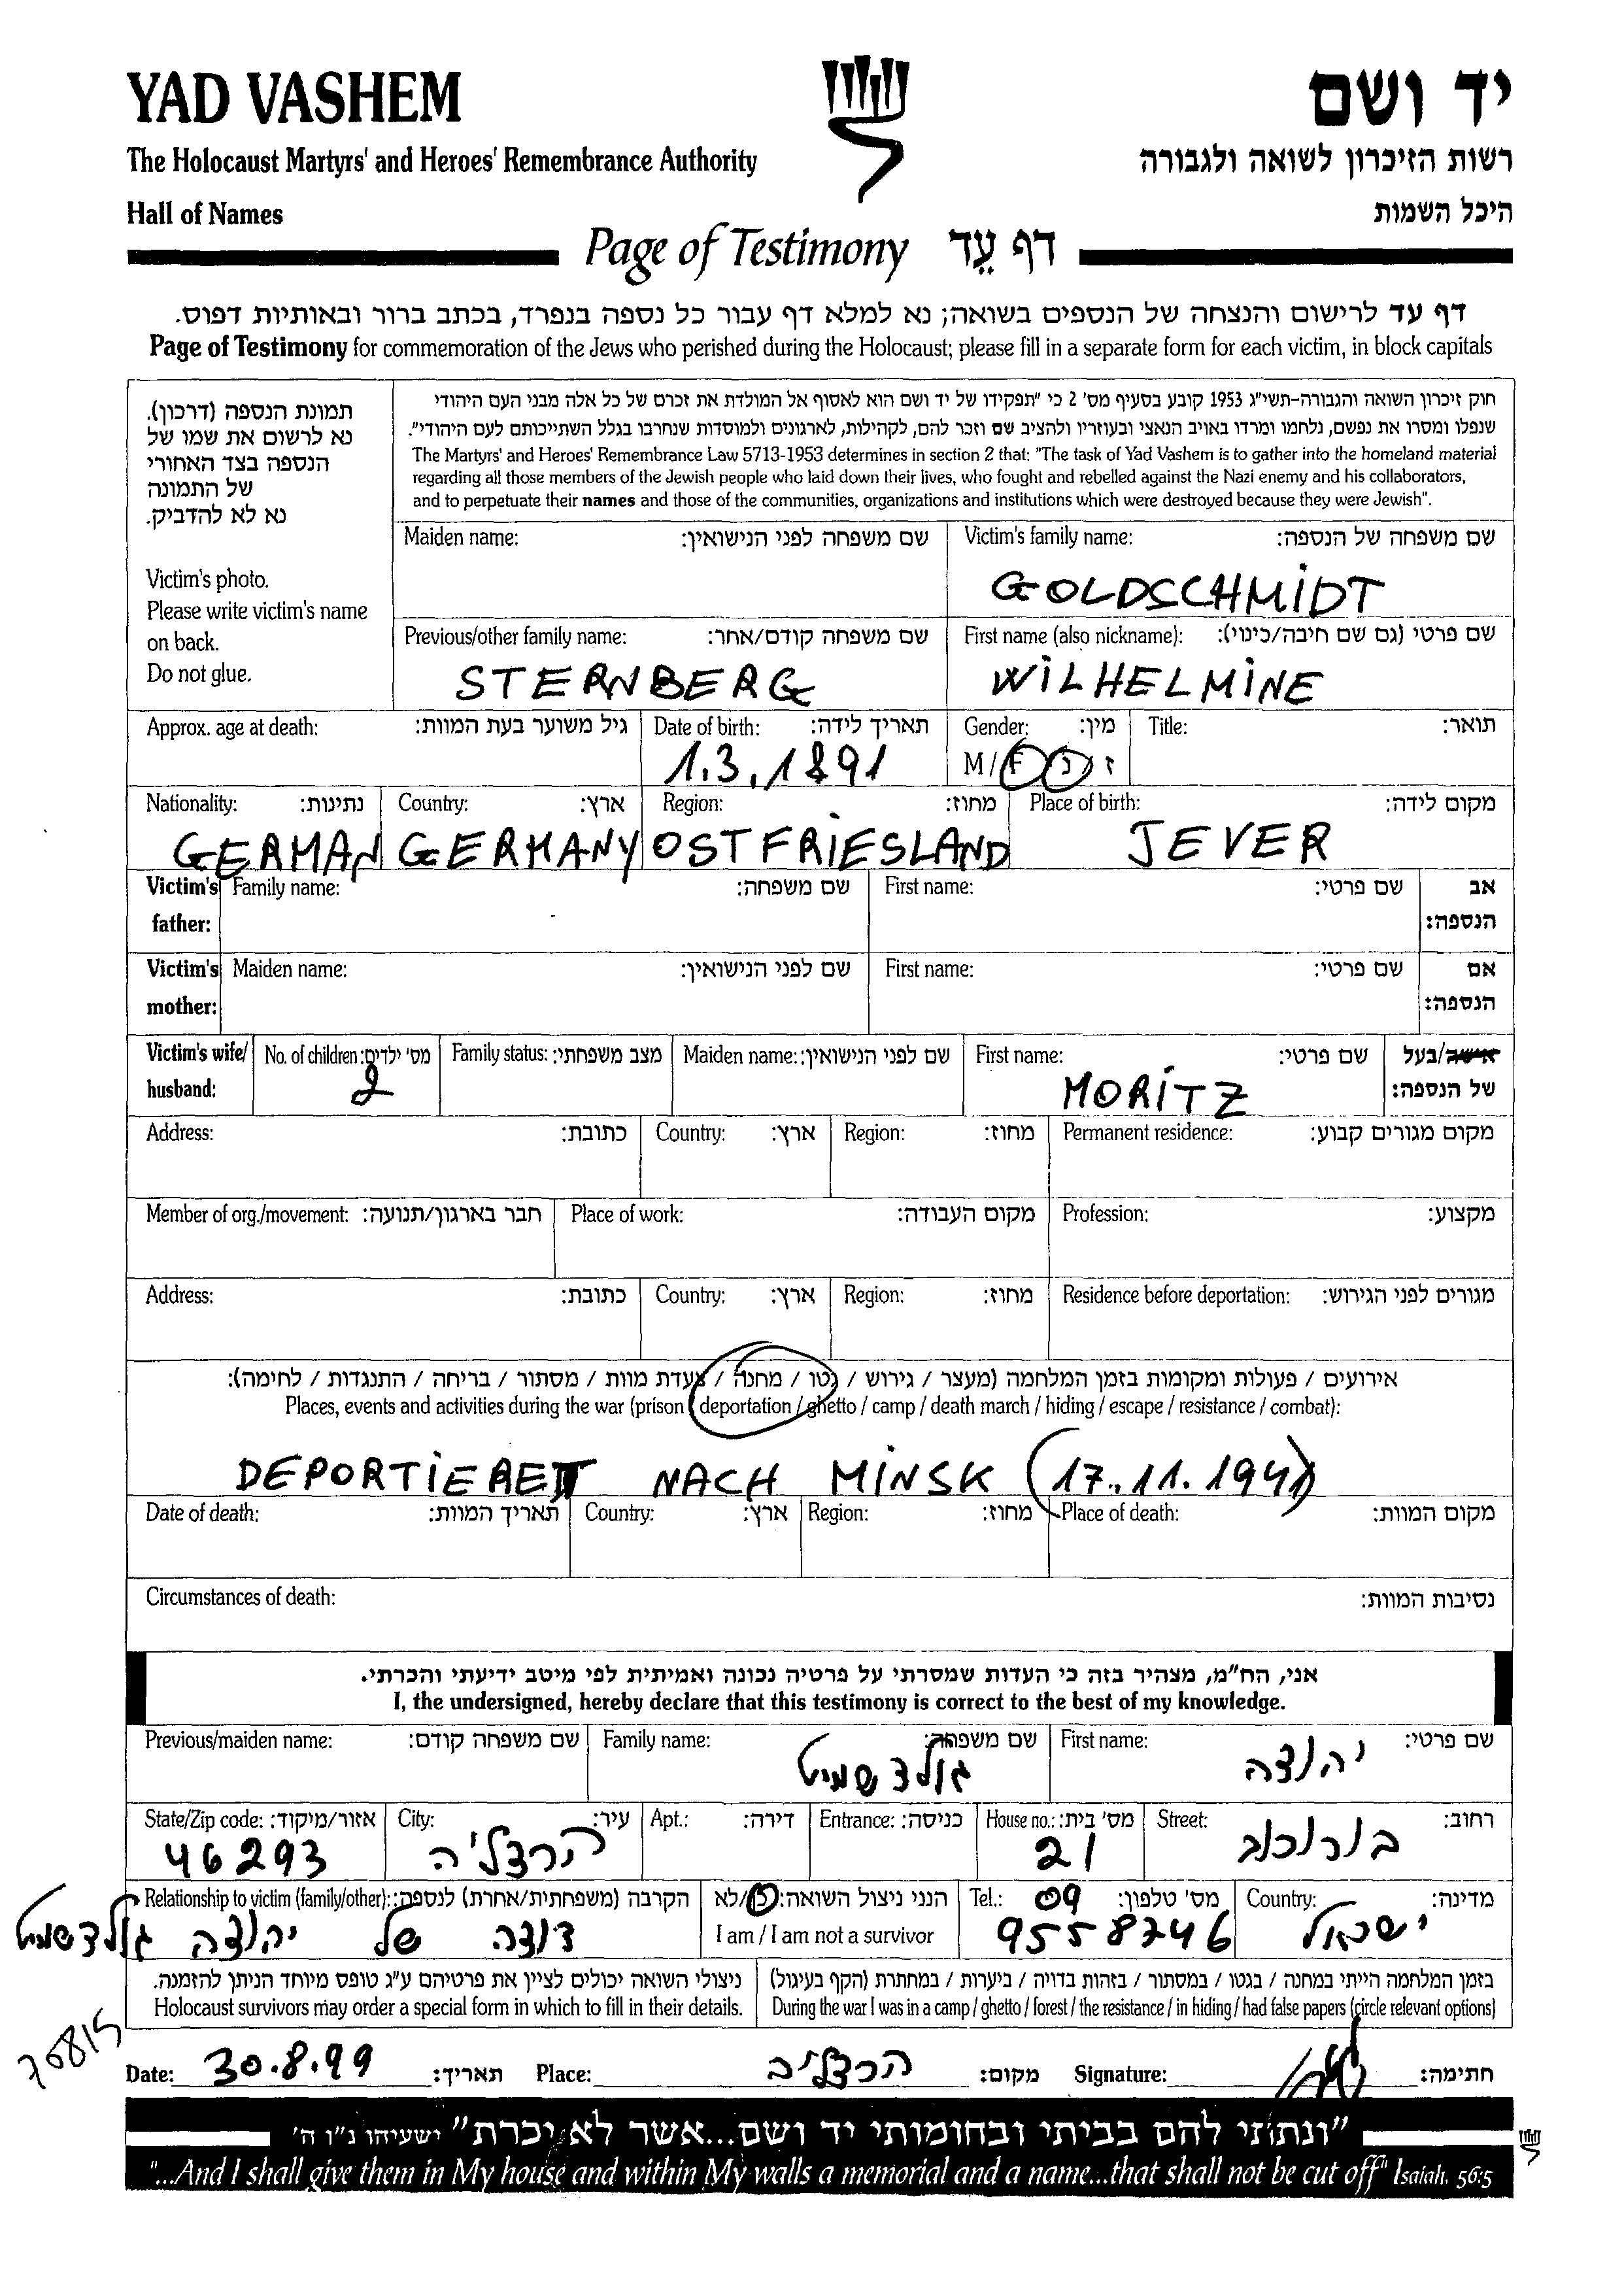 YAD VASHEM
יד ושם
The Holocaust Martyrs' and Heroes' Remembrance Authority
רשות הזיכרון לשואה ולגבורה
Hall of Names
היכל השמות
Page of Testimony דף עֵד
דף עד לרישום והנצחה של הנספים בשואה; נא למלא דף עבור כל נספה בנפרד, בכתב ברור ובאותיות דפוס.
Page of Testimony for commemoration of the Jews who perished during the Holocaust; please fill in a separate form for each victim, in block capitals
תמונת הנספה (דרכון).
נא לרשום את שמו של
הנספה בצד האחורי
של התמונה
נא לא להדביק.
Victim's photo.
Please write victim's name
on back.
Do not glue.
חוק זיכרון השואה והגבורה-תשי"ג 1953 קובע בסעיף מס' 2 כי "תפקידו של יד ושם הוא לאסוף אל המולדת את זכרם של כל אלה מבני העם היהודי
שנפלו ומסרו את נפשם, נלחמו ומרדו באויב הנאצי ובעוזריו ולהציב שם וזכר להם, לקהילות, לארגונים ולמוסדות שנחרבו בגלל השתייכותם לעם היהודי".
The Martyrs' and Heroes' Remembrance Law 5713-1953 determines in section 2 that: "The task of Yad Vashem is to gather into the homeland material
regarding all those members of the Jewish people who laid down their lives, who fought and rebelled against the Nazi enemy and his collaborators,
and to perpetuate their names and those of the communities, organizations and institutions which were destroyed because they were Jewish".
Maiden name: שם משפחה לפני הנישואין: Victim's family name: שם משפחה של הנספה:
GOLDSCHMIDT
Previous/other family name: שם משפחה קודם/אחר: First name (also nickname): שם פרטי (גם שם חיבה/כינוי):
STERNBERG WILHELMINE
Approx. age at death: גיל משוער בעת המוות: Date of birth: תאריך לידה: Gender: מין: Title: תואר:
1.3.1891 M / F ז / נ
Nationality: נתינות: Country: ארץ: Region: מחוז: Place of birth: מקום לידה:
GERMAN GERMANY OSTFRIESLAND JEVER
Victim's father: Family name: שם משפחה: First name: שם פרטי: אב הנספה:
Victim's mother: Maiden name: שם לפני הנישואין: First name: שם פרטי: אם הנספה:
Victim's wife/ husband: No. of children: מס' ילדים: Family status: מצב משפחתי: Maiden name: שם לפני הנישואין: First name: שם פרטי: אישה/בעל של הנספה:
2 MORITZ
Address: כתובת: Country: ארץ: Region: מחוז: Permanent residence: מקום מגורים קבוע:
Member of org./movement: חבר בארגון/תנועה: Place of work: מקום העבודה: Profession: מקצוע:
Address: כתובת: Country: ארץ: Region: מחוז: Residence before deportation: מגורים לפני הגירוש:
אירועים / פעולות ומקומות בזמן המלחמה (מעצר / גירוש / גטו / מחנה / צעדת מוות / מסתור / בריחה / התנגדות / לחימה):
Places, events and activities during the war (prison / deportation / ghetto / camp / death march / hiding / escape / resistance / combat):
DEPORTIERET NACH MINSK (17.11.1941)
Date of death: תאריך המוות: Country: ארץ: Region: מחוז: Place of death: מקום המוות:
Circumstances of death: נסיבות המוות:
אני, הח"מ, מצהיר בזה כי העדות שמסרתי על פרטיה נכונה ואמיתית לפי מיטב ידיעתי והכרתי.
I, the undersigned, hereby declare that this testimony is correct to the best of my knowledge.
Previous/maiden name: שם משפחה קודם: Family name: שם משפחה: First name: שם פרטי:
גולדשמיט יהודה
State/Zip code: אזור/מיקוד: City: עיר: Apt.: דירה: Entrance: כניסה: House no.: מס' בית: Street: רחוב:
46293 הרצליה 21 ברוכוב
Relationship to victim (family/other): הקרבה (משפחתית/אחרת) לנספה: הנני ניצול השואה: כן/לא Tel.: 09 מס' טלפון: Country: מדינה:
דודה של יהודה גולדשמיט I am / I am not a survivor 9558746 ישראל
ניצולי השואה יכולים לציין את פרטיהם ע"ג טופס מיוחד הניתן להזמנה.
Holocaust survivors may order a special form in which to fill in their details.
בזמן המלחמה הייתי במחנה / בגטו / במסתור / בזהות בדויה / ביערות / במחתרת (הקף בעיגול)
During the war I was in a camp / ghetto / forest / the resistance / in hiding / had false papers (circle relevant options)
70815
Date: 30.8.99 תאריך: Place: הרצליה מקום: Signature: חתימה:
"ונתתי להם בביתי ובחומותי יד ושם...אשר לא יכרת" ישעיהו נ"ו ה'
"...And I shall give them in My house and within My walls a memorial and a name...that shall not be cut off" Isaiah, 56:5